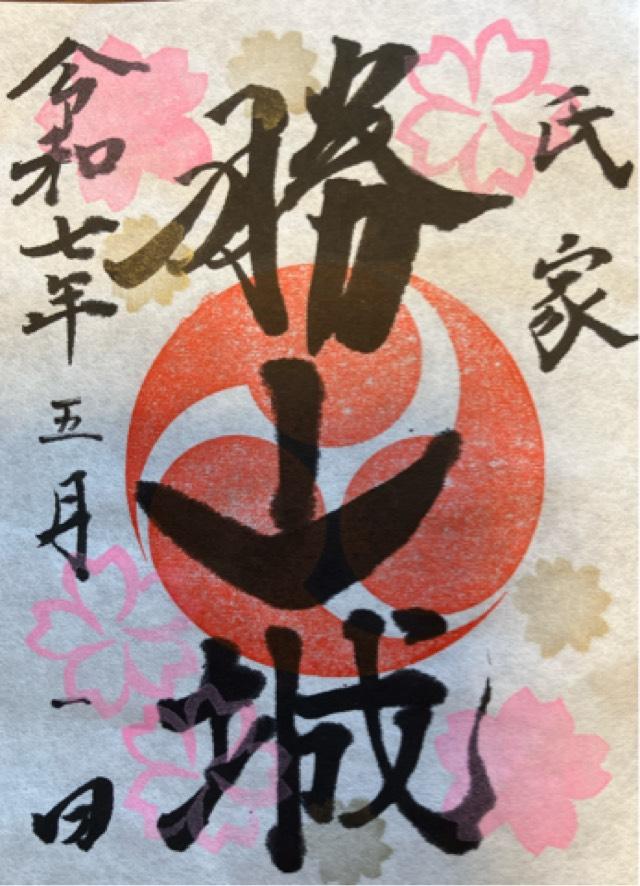 氏家
勝山城
令和七年五月一日